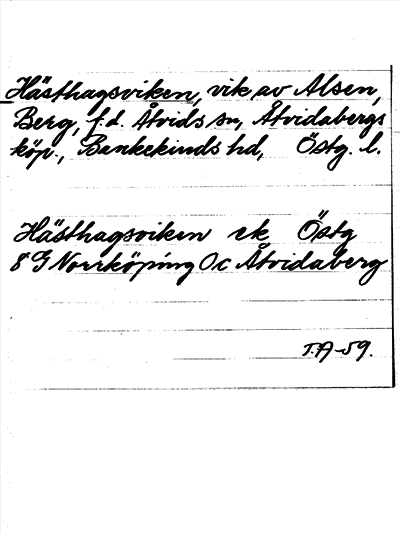 Hästhagsviken, vik av Alsen,
Berg, f.d. Åtvids sn, Åtvidabergs
köp., Bankekinds hd, Östg. l.
Hästhagsviken ek Östg
8 G Norrköping 0c Åtvidaberg
T.A-59.